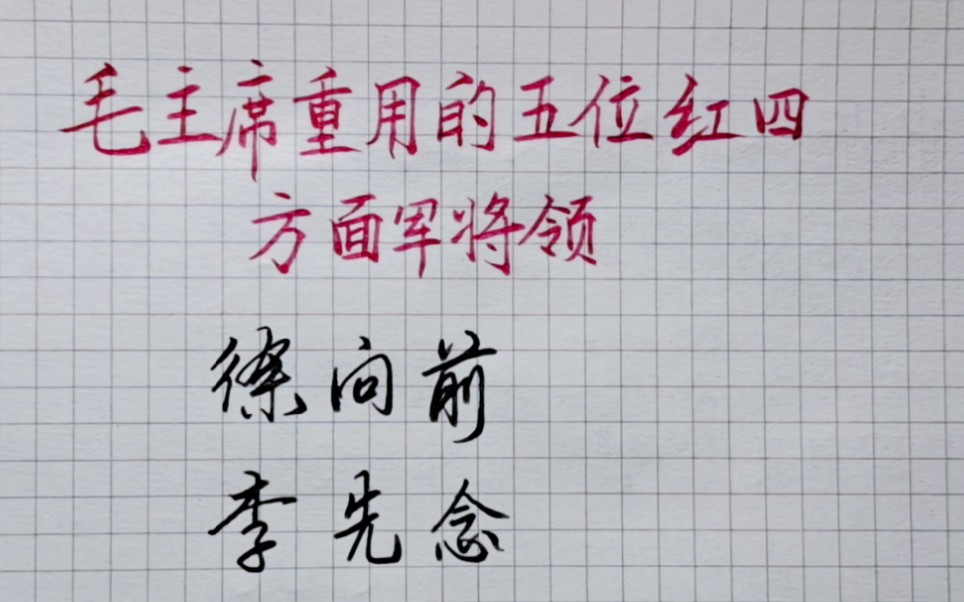 毛主席重用的五位红四
方面军将领
徐向前
李先念